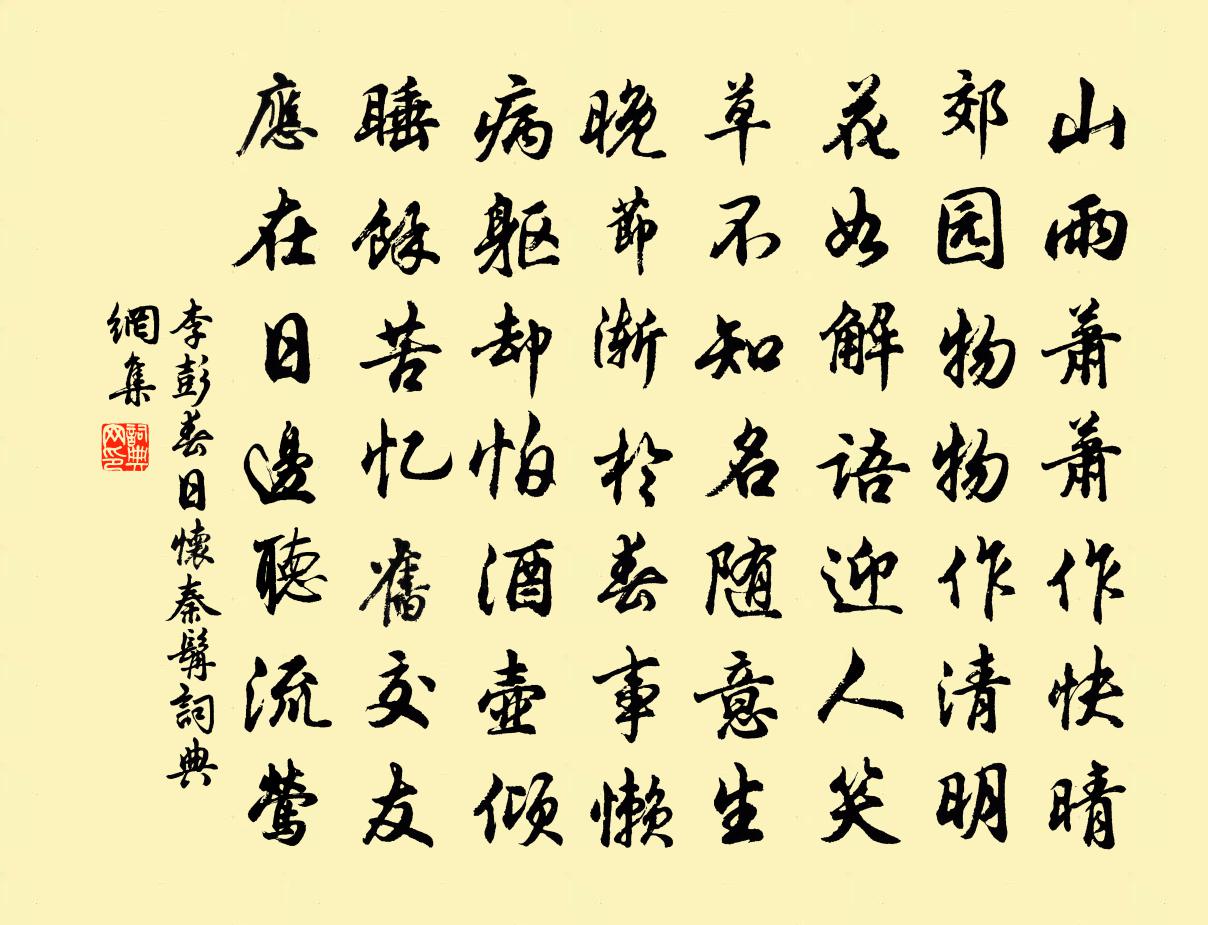 山雨萧萧作快晴
郊园物物作清明
花如解语迎人笑
草不知名随意生
晚节渐於春事懒
病躯却怕酒壶倾
睡餘苦忆舊交友
應在日邊聽流莺
李彭春日懷秦髯詞典
網集
詞典网印